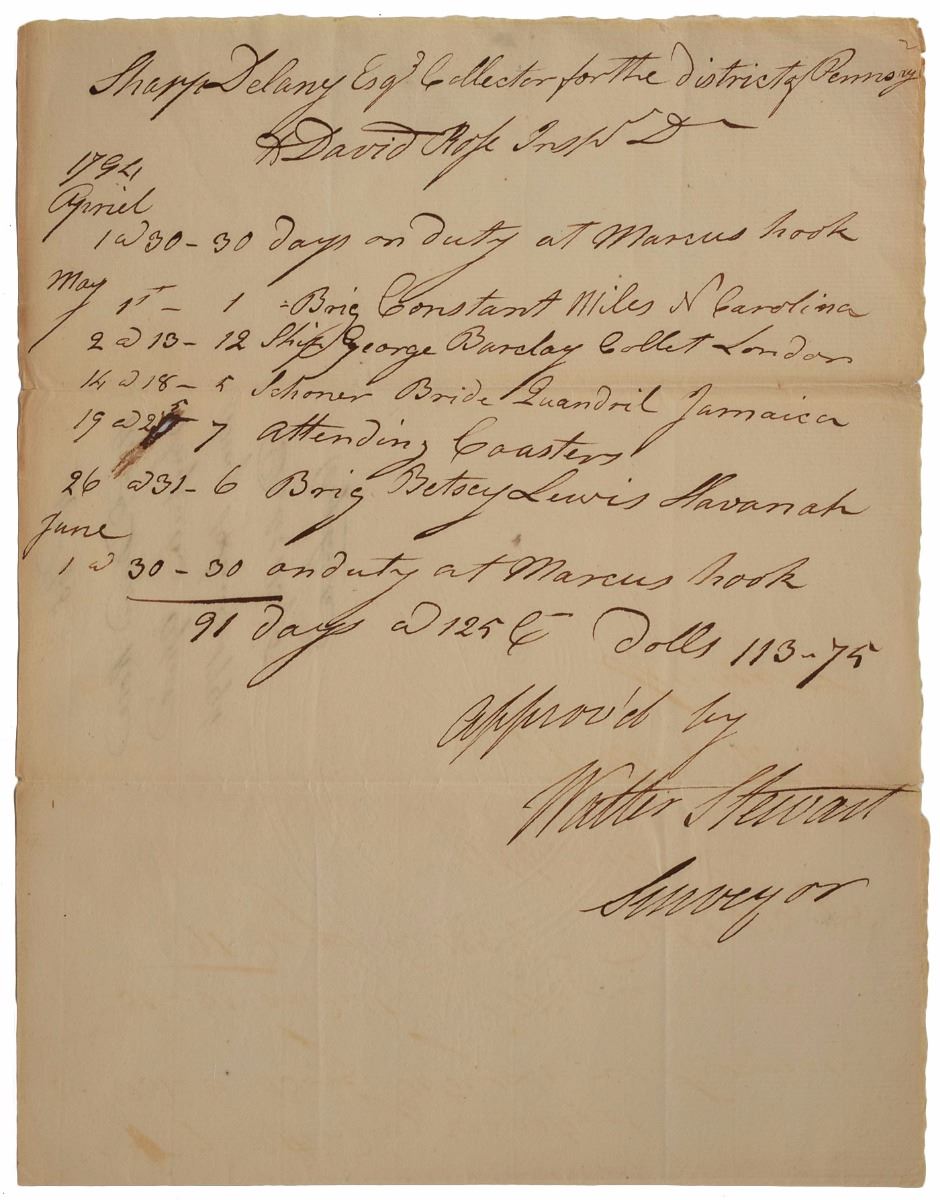 Sharp Delany Esqr Collector for the district of Pennsy
To David Rose Inspr Dr
1794
Apriel
1 a 30 - 30 days on duty at Marcus hook
May
1st - 1 Brig Constant Miles N Carolina
2 a 13 - 12 Ship George Barclay Collet London
14 a 18 - 5 Schoner Bride Quandril Jamaica
19 a 25 7 Attending Coasters
26 a 31 - 6 Brig Betsey Lewis Havanah
June
1 a 30 - 30 on duty at Marcus hook
91 days a 125 C Dolls 113-75
Approv'd by
Walter Stewart
Surveyor